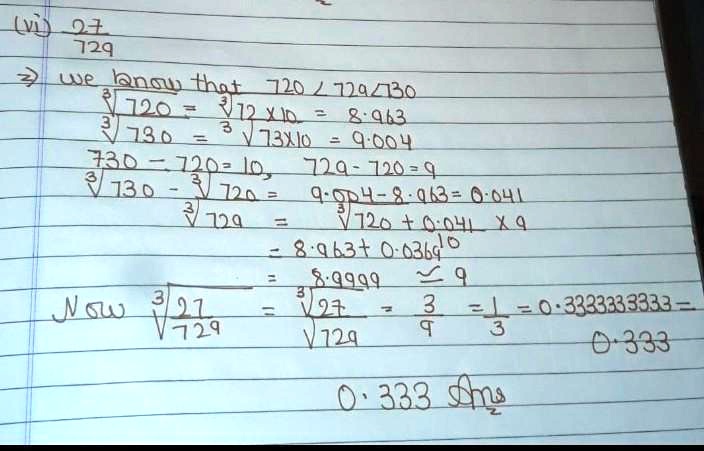 (vi) 27/729
⇒ we know that 720 < 729 < 730
∛720 = ∛72 × 10 = 8.963
∛730 = ∛73×10 = 9.004
730 - 720 = 10, 729 - 720 = 9
∛730 - ∛720 = 9.004 - 8.963 = 0.041
∛729 = ∛720 + 0.041/10 × 9
= 8.963 + 0.0369
= 8.9999 ≃ 9
Now ∛27/729 = ∛27/√729 = 3/9 = 1/3 = 0.3333333333 =
0.333
0.333 Ans